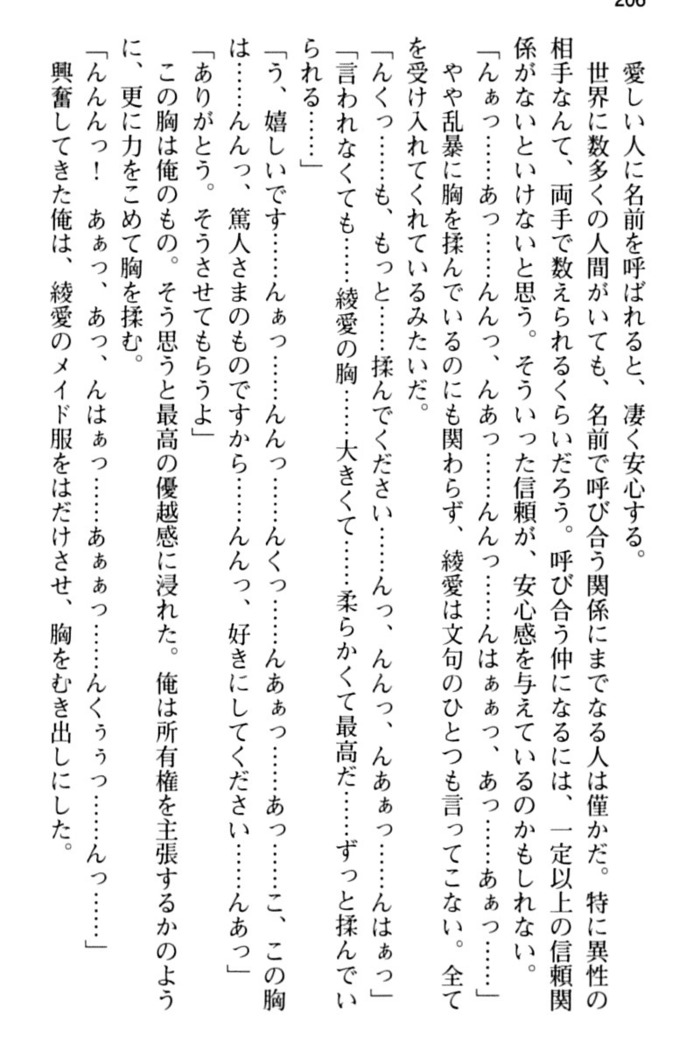 206
愛しい人に名前を呼ばれると、凄く安心する。
世界に数多くの人間がいても、名前で呼び合う関係にまでなる人は僅かだ。特に異性の
相手なんて、両手で数えられるくらいだろう。呼び合う仲になるには、一定以上の信頼関
係がないといけないと思う。そういった信頼が、安心感を与えているのかもしれない。
「んぁっ……あっ……んんっ、んあっ……んんっ……んはぁぁっ、あっ……あぁっ……」
やや乱暴に胸を揉んでいるのにも関わらず、綾愛は文句のひとつも言ってこない。全て
を受け入れてくれているみたいだ。
「んくっ……も、もっと……揉んでください……んっ、んんっ、んあぁっ……んはぁっ」
「言われなくても……綾愛の胸……大きくて……柔らかくて最高だ……ずっと揉んでい
られる……」
「う、嬉しいです……んぁっ……んんっ……んくっ……んあぁっ……あっ……こ、この胸
は……んんっ、篤人さまのものですから……んんっ、好きにしてください……んあっ」
「ありがとう。そうさせてもらうよ」
この胸は俺のもの。そう思うと最高の優越感に浸れた。俺は所有権を主張するかのよう
に、更に力をこめて胸を揉む。
「んんんっ！　あぁっ、あっ、んはぁっ……あぁぁっ……んくぅぅっ……んっ……」
興奮してきた俺は、綾愛のメイド服をはだけさせ、胸をむき出しにした。